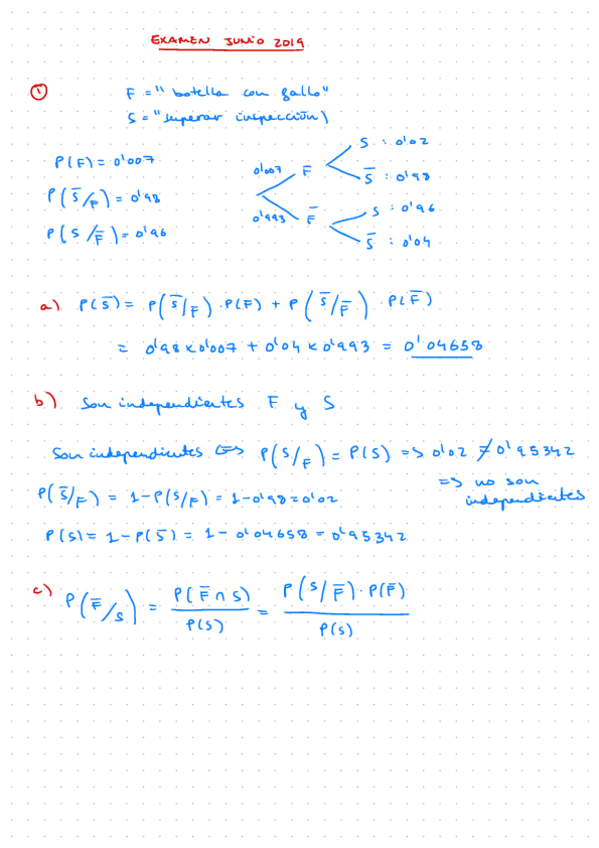 EXAMEN JUNIO 2019
① F = "botella con fallo"
S = "superar inspección)
P(F) = 0'007
P(S̅/F) = 0'98
P(S/F̅) = 0'96
0'007 F
S : 0'02
S̅ : 0'98
0'993 F̅
S : 0'96
S̅ : 0'04
a) P(S̅) = P(S̅/F) · P(F) + P(S̅/F̅) · P(F̅)
= 0'98 x 0'007 + 0'04 x 0'993 = 0'04658
b) Son independientes F y S
Son independientes <=> P(S/F) = P(S) => 0'02 ≠ 0'95342
=> no son
independientes
P(S̅/F) = 1 - P(S/F) = 1 - 0'98 = 0'02
P(S) = 1 - P(S̅) = 1 - 0'04658 = 0'95342
c) P(F̅/S) = P(F̅ ∩ S) / P(S) = P(S/F̅) · P(F̅) / P(S)